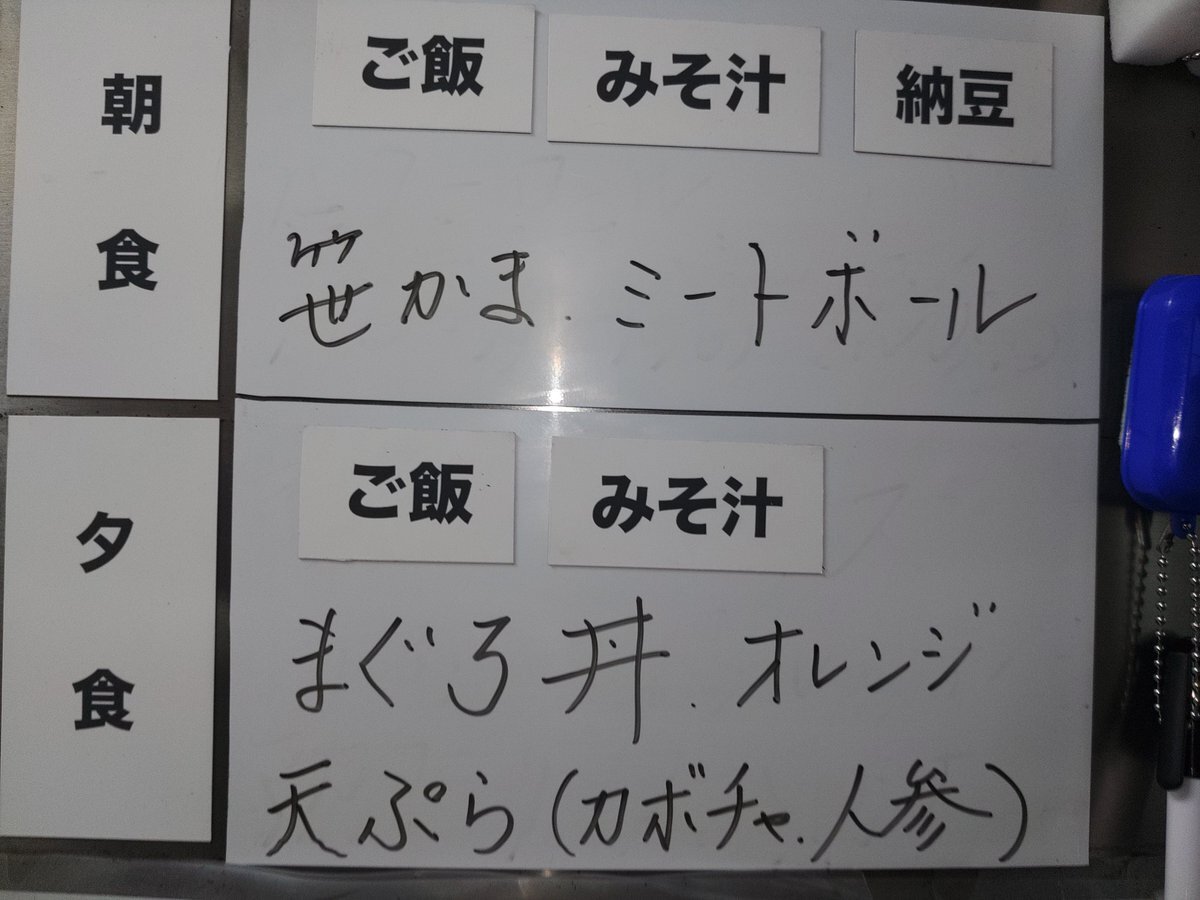 朝食
ご飯 みそ汁 納豆
笹かま.ミートボール
夕食
ご飯 みそ汁
まぐろ丼.オレンジ
天ぷら(カボチャ.人参)